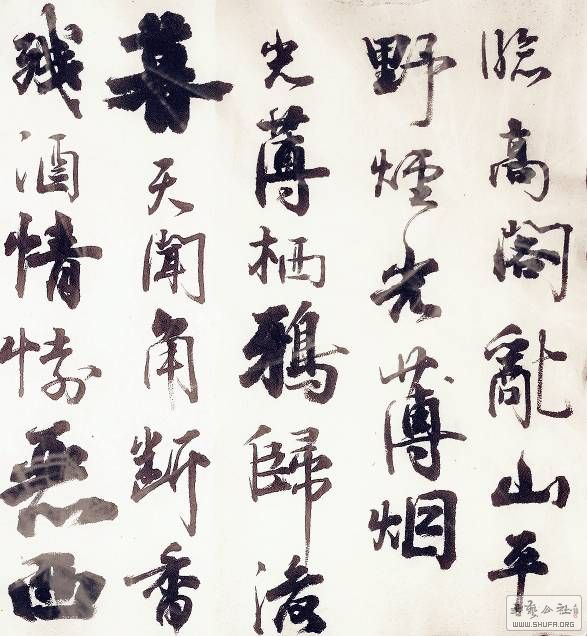 臨高閣亂山平
野煙光薄烟
光薄栖鴉歸後
暮天聞角断香
残酒情懷悪西
書藝公社
WWW.SHUFA.ORG